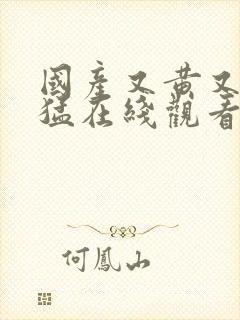 國產又黃又
猛在綫觀看
何鳳山